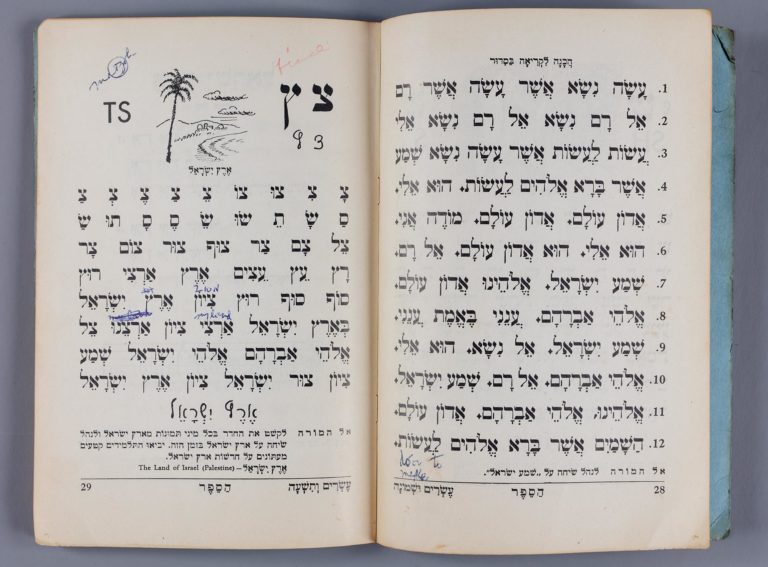 הֲכָנָה לִקְרִיאָה בְּסִדּוּר
1. עָשָׂה נִשָּׂא אֲשֶׁר עָשָׂה אֲשֶׁר רָם
2. אֵל רָם נִשָּׂא אֵל רָם נִשָּׂא אֵלִי
3. עֲשׂוֹת לַעֲשׂוֹת אֲשֶׁר עָשָׂה נִשָּׂא שְׁמַע
4. אֲשֶׁר בָּרָא אֱלֹהִים לַעֲשׂוֹת. הוּא אֵלִי.
5. אֲדוֹן עוֹלָם. אֲדוֹן עוֹלָם. מוֹדֶה אֲנִי.
6. הוּא אֵלִי. הוּא אֲדוֹן עוֹלָם. אֵל רָם.
7. שְׁמַע יִשְׂרָאֵל. אֱלֹהֵינוּ אֲדוֹן עוֹלָם.
8. אֱלֹהֵי אַבְרָהָם. עֲנֵנִי בֶּאֱמֶת עֲנֵנִי.
9. שְׁמַע יִשְׂרָאֵל. אֵל נִשָּׂא. הוּא אֵלִי.
10. אֱלֹהֵי אַבְרָהָם. אֵל רָם. שְׁמַע יִשְׂרָאֵל.
11. אֱלֹהֵינוּ. אֱלֹהֵי אַבְרָהָם. אֲדוֹן עוֹלָם.
12. הַשָּׁמַיִם אֲשֶׁר בָּרָא אֱלֹהִים לַעֲשׂוֹת.
אל המורה לנהל שיחה על „שמע ישראל".
28 הַסֵּפֶר עֶשְׂרִים וּשְׁמוֹנָה
צ ץ
TS
93
אֶרֶץ יִשְׂרָאֵל
צֵל עָם צַר צוּף צוּר צוֹם צָר
רָץ עֵץ עֵצִים אֶרֶץ אַרְצִי רוּץ
סוֹף סוּף רוּץ צִיּוֹן אֶרֶץ יִשְׂרָאֵל
בְּאֶרֶץ יִשְׂרָאֵל אַרְצִי צִיּוֹן אַרְצֵנוּ צֵל
אֱלֹהֵי אַבְרָהָם אֱלֹהֵי יִשְׂרָאֵל שְׁמַע
צִיּוֹן צוּר יִשְׂרָאֵל צִיּוֹן אֶרֶץ יִשְׂרָאֵל
אֶרֶץ יִשְׂרָאֵל
אל המורה לקשט את החדר בכל מיני תמונות מארץ ישראל ולנהל
שיחה על ארץ ישראל בזמן הזה. יביאו התלמידים קטעים
מעתונים על חדשות ארץ ישראל.
אֶרֶץ יִשְׂרָאֵל – The Land of Israel (Palestine)
29 הַסֵּפֶר עֶשְׂרִים וְתִשְׁעָה